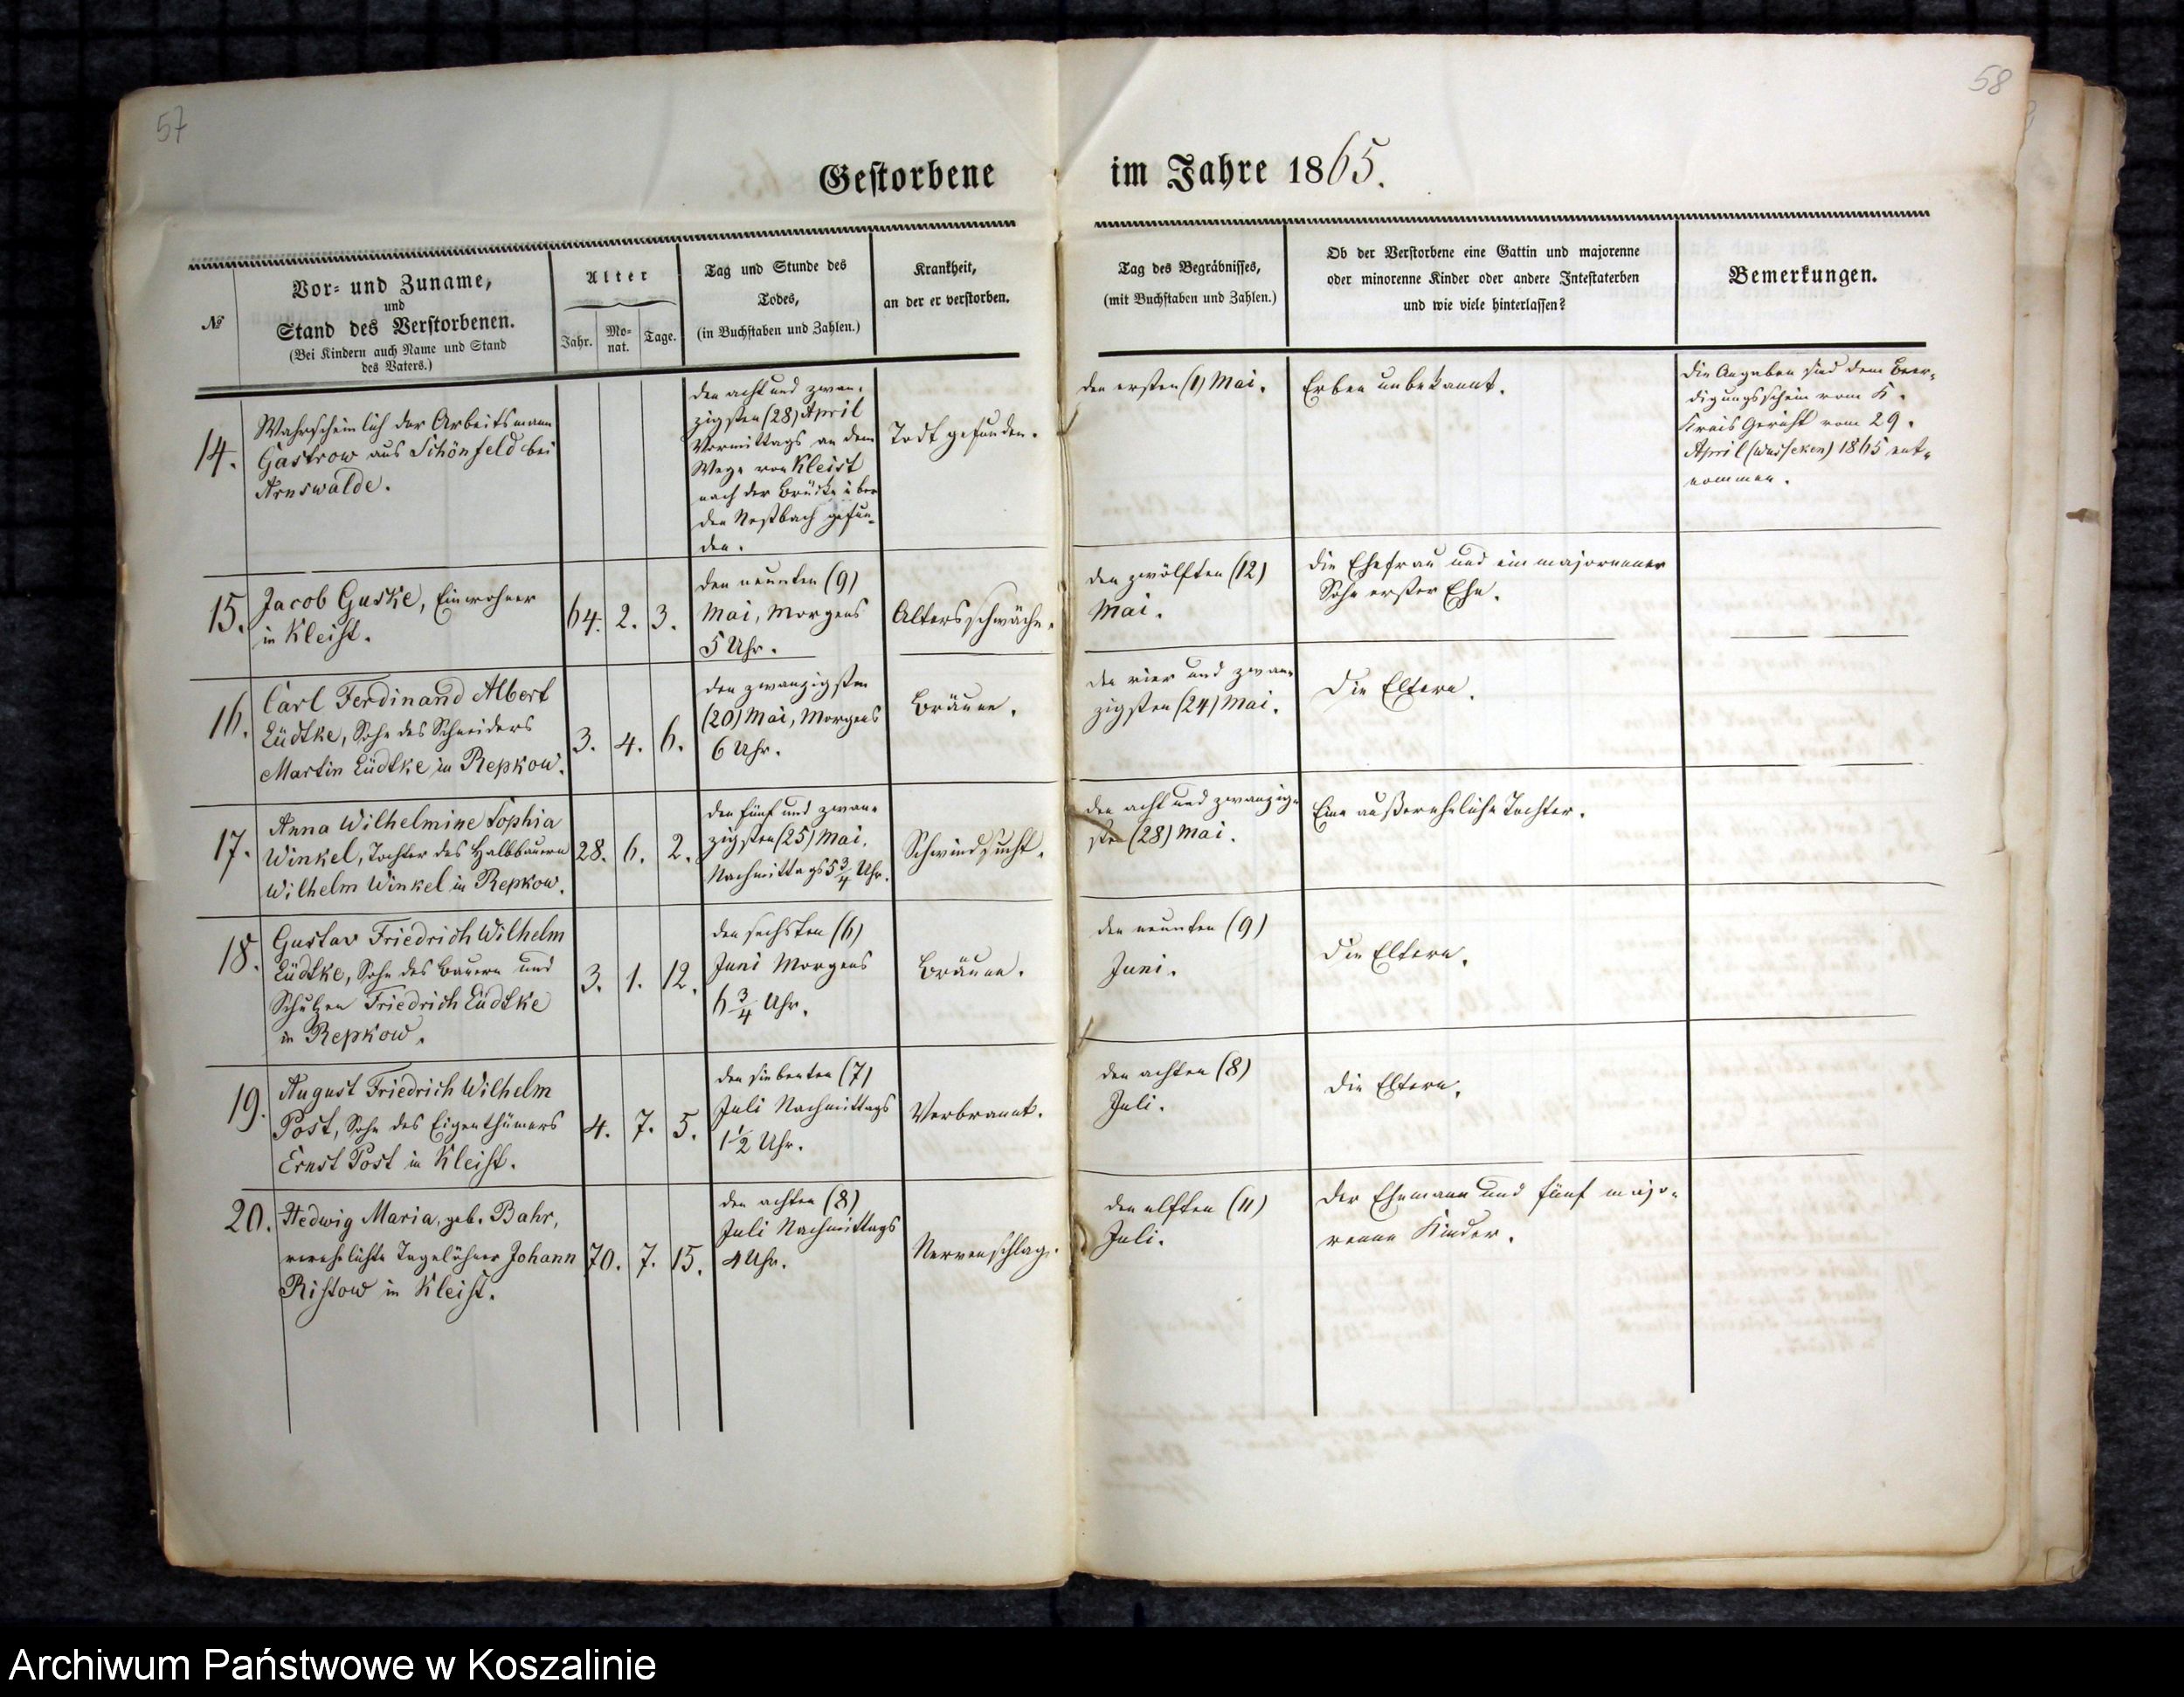 57
58
Gestorbene im Jahre 1865.
№
Vor- und Zuname,
und
Stand des Verstorbenen.
(Bei Kindern auch Name und Stand
des Vaters.)
Alter
Jahr.
Mo-
nat.
Tage.
Tag und Stunde des
Todes,
(in Buchstaben und Zahlen.)
Krankheit,
an der er verstorben.
Tag des Begräbnisses,
(mit Buchstaben und Zahlen.)
Ob der Verstorbene eine Gattin und majorenne
oder minorenne Kinder oder andere Intestaterben
und wie viele hinterlassen?
Bemerkungen.
14.
Wahrscheinlich der Arbeitsmann
Gastrow aus Schönfeld bei
Arnswalde.
den acht und zwan-
zigsten (28) April
Vormittags an dem
Wege von Kleist
nach der Brücke über
den Nestbach gefun-
den.
Todt gefunden.
den ersten (1) Mai.
Erben unbekannt.
Die Angaben sind dem Beer-
digungsschein vom K.
Kreis Gericht vom 29.
April (Wusseken) 1865 ent-
nommen.
15.
Jacob Guske, Einwohner
in Kleist.
64. 2. 3.
den neunten (9)
Mai, Morgens
5 Uhr.
Altersschwäche.
den zwölften (12)
Mai.
Die Ehefrau und ein majorenner
Sohn erster Ehe.
16.
Carl Ferdinand Albert
Lüdtke, Sohn des Schneiders
Martin Lüdtke in Repkow.
3. 4. 6.
den zwanzigsten
(20) Mai, Morgens
6 Uhr.
Bräune.
den vier und zwan-
zigsten (24) Mai.
Die Eltern.
17.
Anna Wilhelmine Sophia
Winkel, Tochter des Halbbauern
Wilhelm Winkel in Repkow.
28. 6. 2.
den fünf und zwan-
zigsten (25) Mai,
Nachmittags 5 3/4 Uhr.
Schwindsucht.
den acht und zwanzig-
sten (28) Mai.
Eine außereheliche Tochter.
18.
Gustav Friedrich Wilhelm
Lüdtke, Sohn des Bauern und
Schulzen Friedrich Lüdtke
in Repkow.
3. 1. 12.
den sechsten (6)
Juni Morgens
6 3/4 Uhr.
Bräune.
den neunten (9)
Juni.
Die Eltern.
19.
August Friedrich Wilhelm
Post, Sohn des Eigenthümers
Ernst Post in Kleist.
4. 7. 5.
den siebenten (7)
Juli Nachmittags
1 1/2 Uhr.
Verbrannt.
den achten (8)
Juli.
Die Eltern.
20.
Hedwig Maria, geb. Bahr,
verehelichte Tagelöhner Johann
Ristow in Kleist.
70. 7. 15.
den achten (8)
Juli Nachmittags
4 Uhr.
Nervenschlag.
den elften (11)
Juli.
Der Ehemann und fünf majo-
renne Kinder.
Archiwum Państwowe w Koszalinie